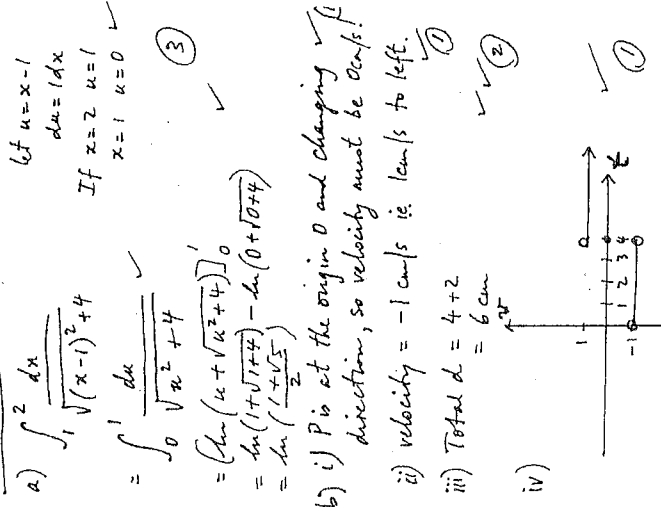 a) ∫₁² dx / √((x-1)² + 4)
let u = x-1
du = 1dx
If x=2 u=1
x=1 u=0 ✓
= ∫₀¹ du / √(u² + 4) ✓
③
= [ln(u + √(u²+4))]₀¹ ✓
= ln(1+√(1+4)) - ln(0+√(0+4))
= ln((1+√5)/2)
b) i) P is at the origin O and changing ✓ ①
direction, so velocity must be 0cm/s.
ii) velocity = -1 cm/s ie 1cm/s to left. ✓ ①
iii) Total d = 4+2
= 6 cm ✓✓ ②
iv)
v
1
1 2 3 4 t
-1
✓ ①